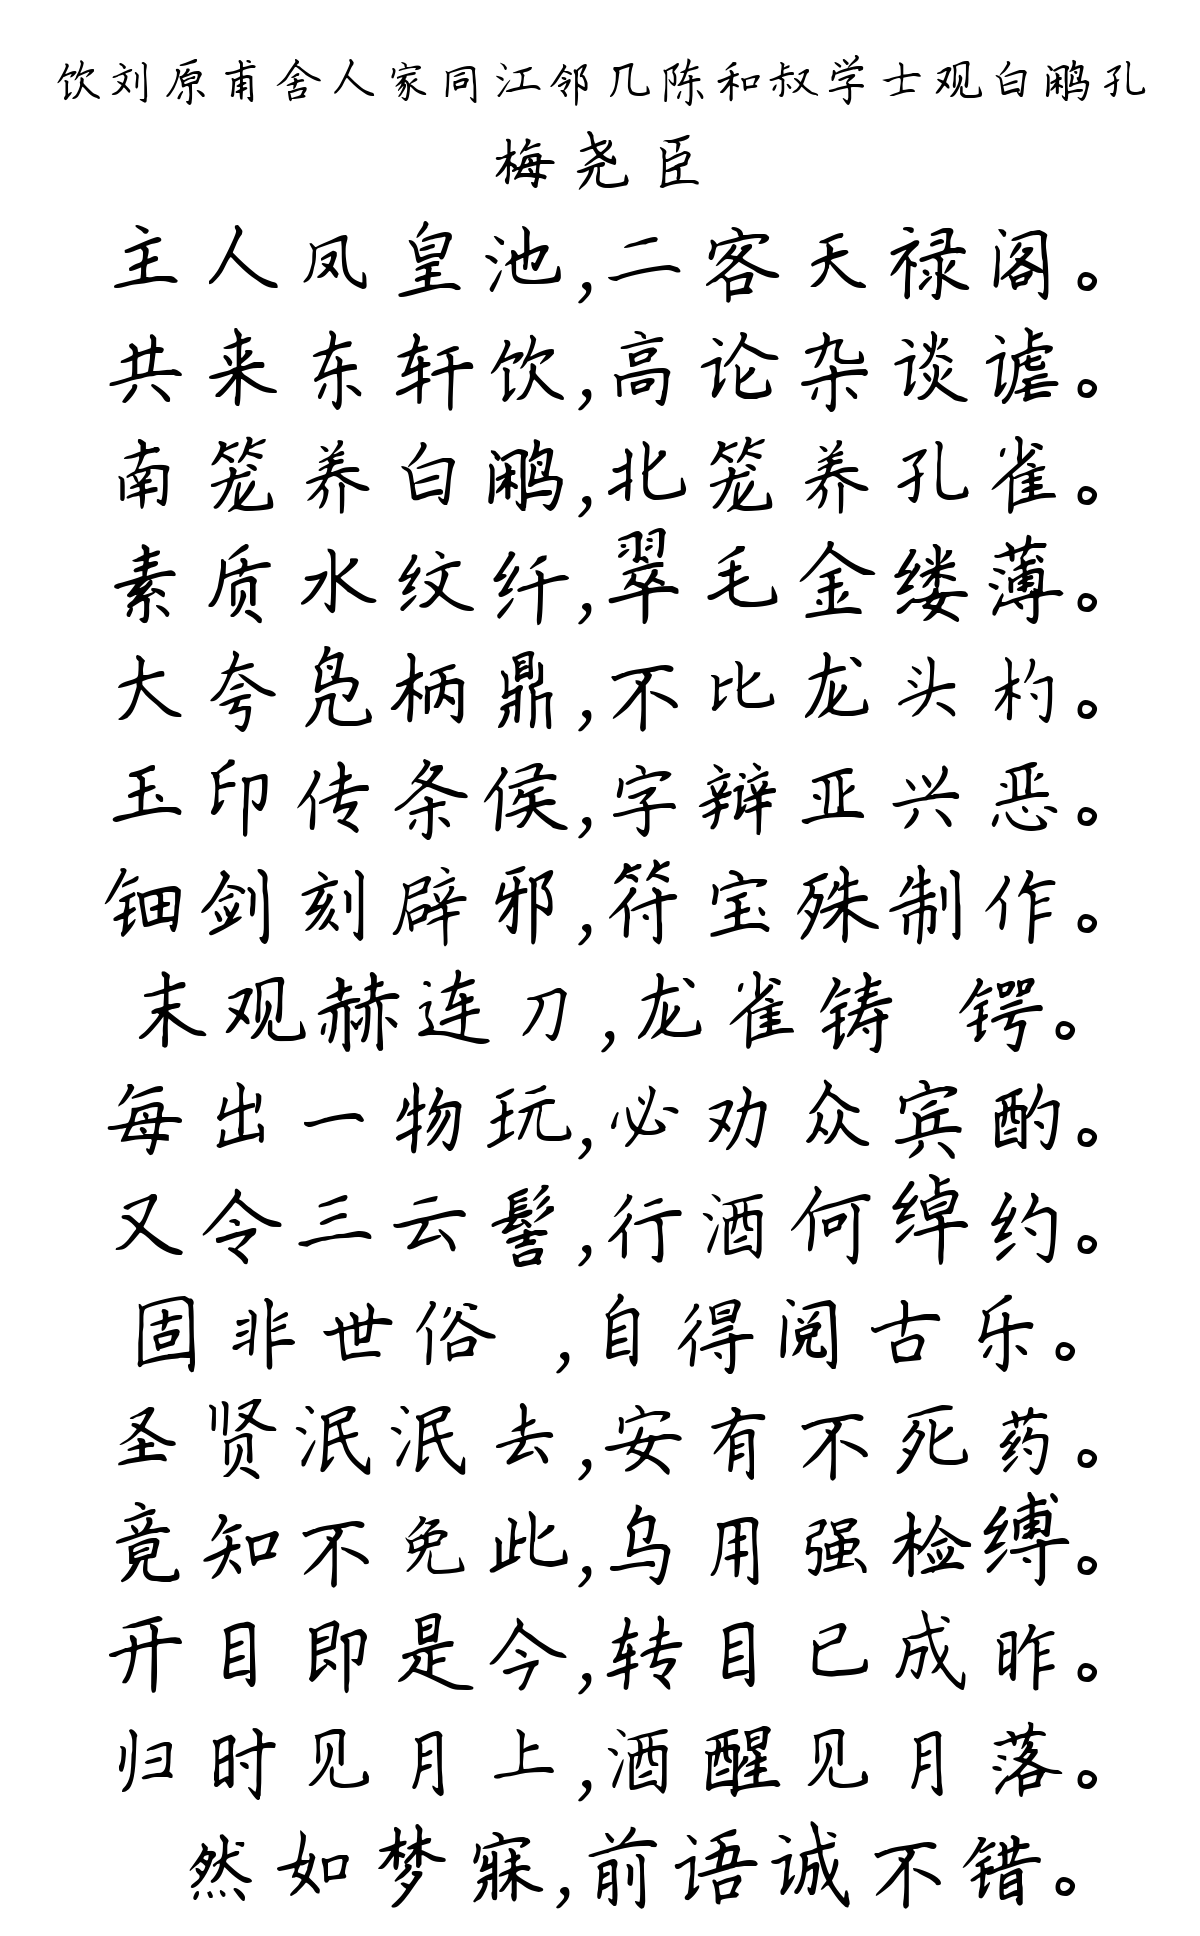 饮刘原甫舍人家同江邻几陈和叔学士观白鹇孔
梅尧臣
主人凤皇池,二客天禄阁。
共来东轩饮,高论杂谈谑。
南笼养白鹇,北笼养孔雀。
素质水纹纤,翠毛金缕薄。
大夸凫柄鼎,不比龙头杓。
玉印传条侯,字辩亚兴恶。
钿剑刻辟邪,符宝殊制作。
末观赫连刀,龙雀铸 锷。
每出一物玩,必劝众宾酌。
又令三云髻,行酒何绰约。
固非世俗 ,自得阅古乐。
圣贤泯泯去,安有不死药。
竟知不免此,乌用强检缚。
开目即是今,转目已成昨。
归时见月上,酒醒见月落。
然如梦寐,前语诚不错。